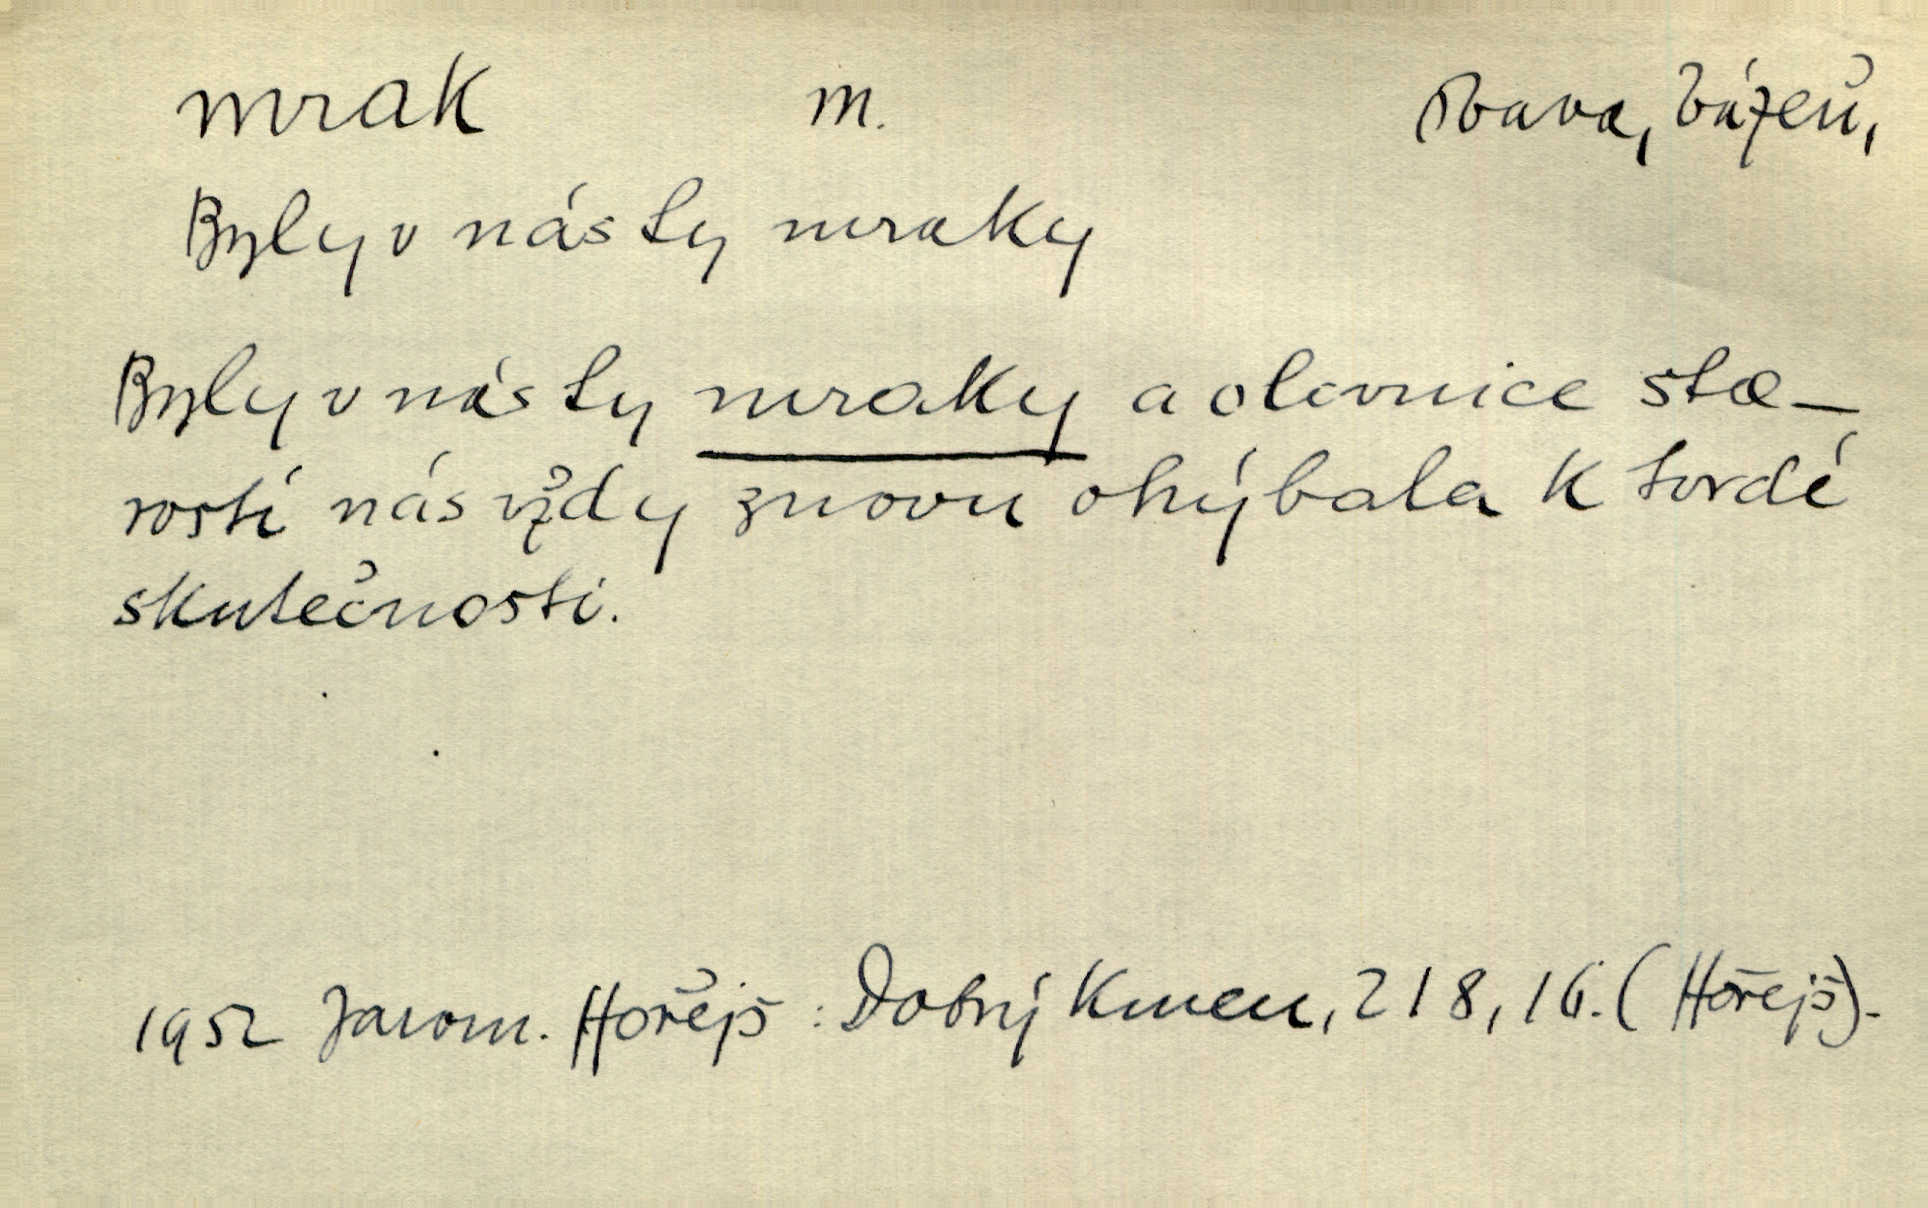 mrak m. vázeň,
Byly v nás ty mraky
Byly v nás ty mraky a olovnice sta-
rostí nás vždy znovu ohýbala k tvrdé
skutečnosti.
1952 Jarom. Hořejš: Dobrý kmen, 218, 16. (Hořejš).